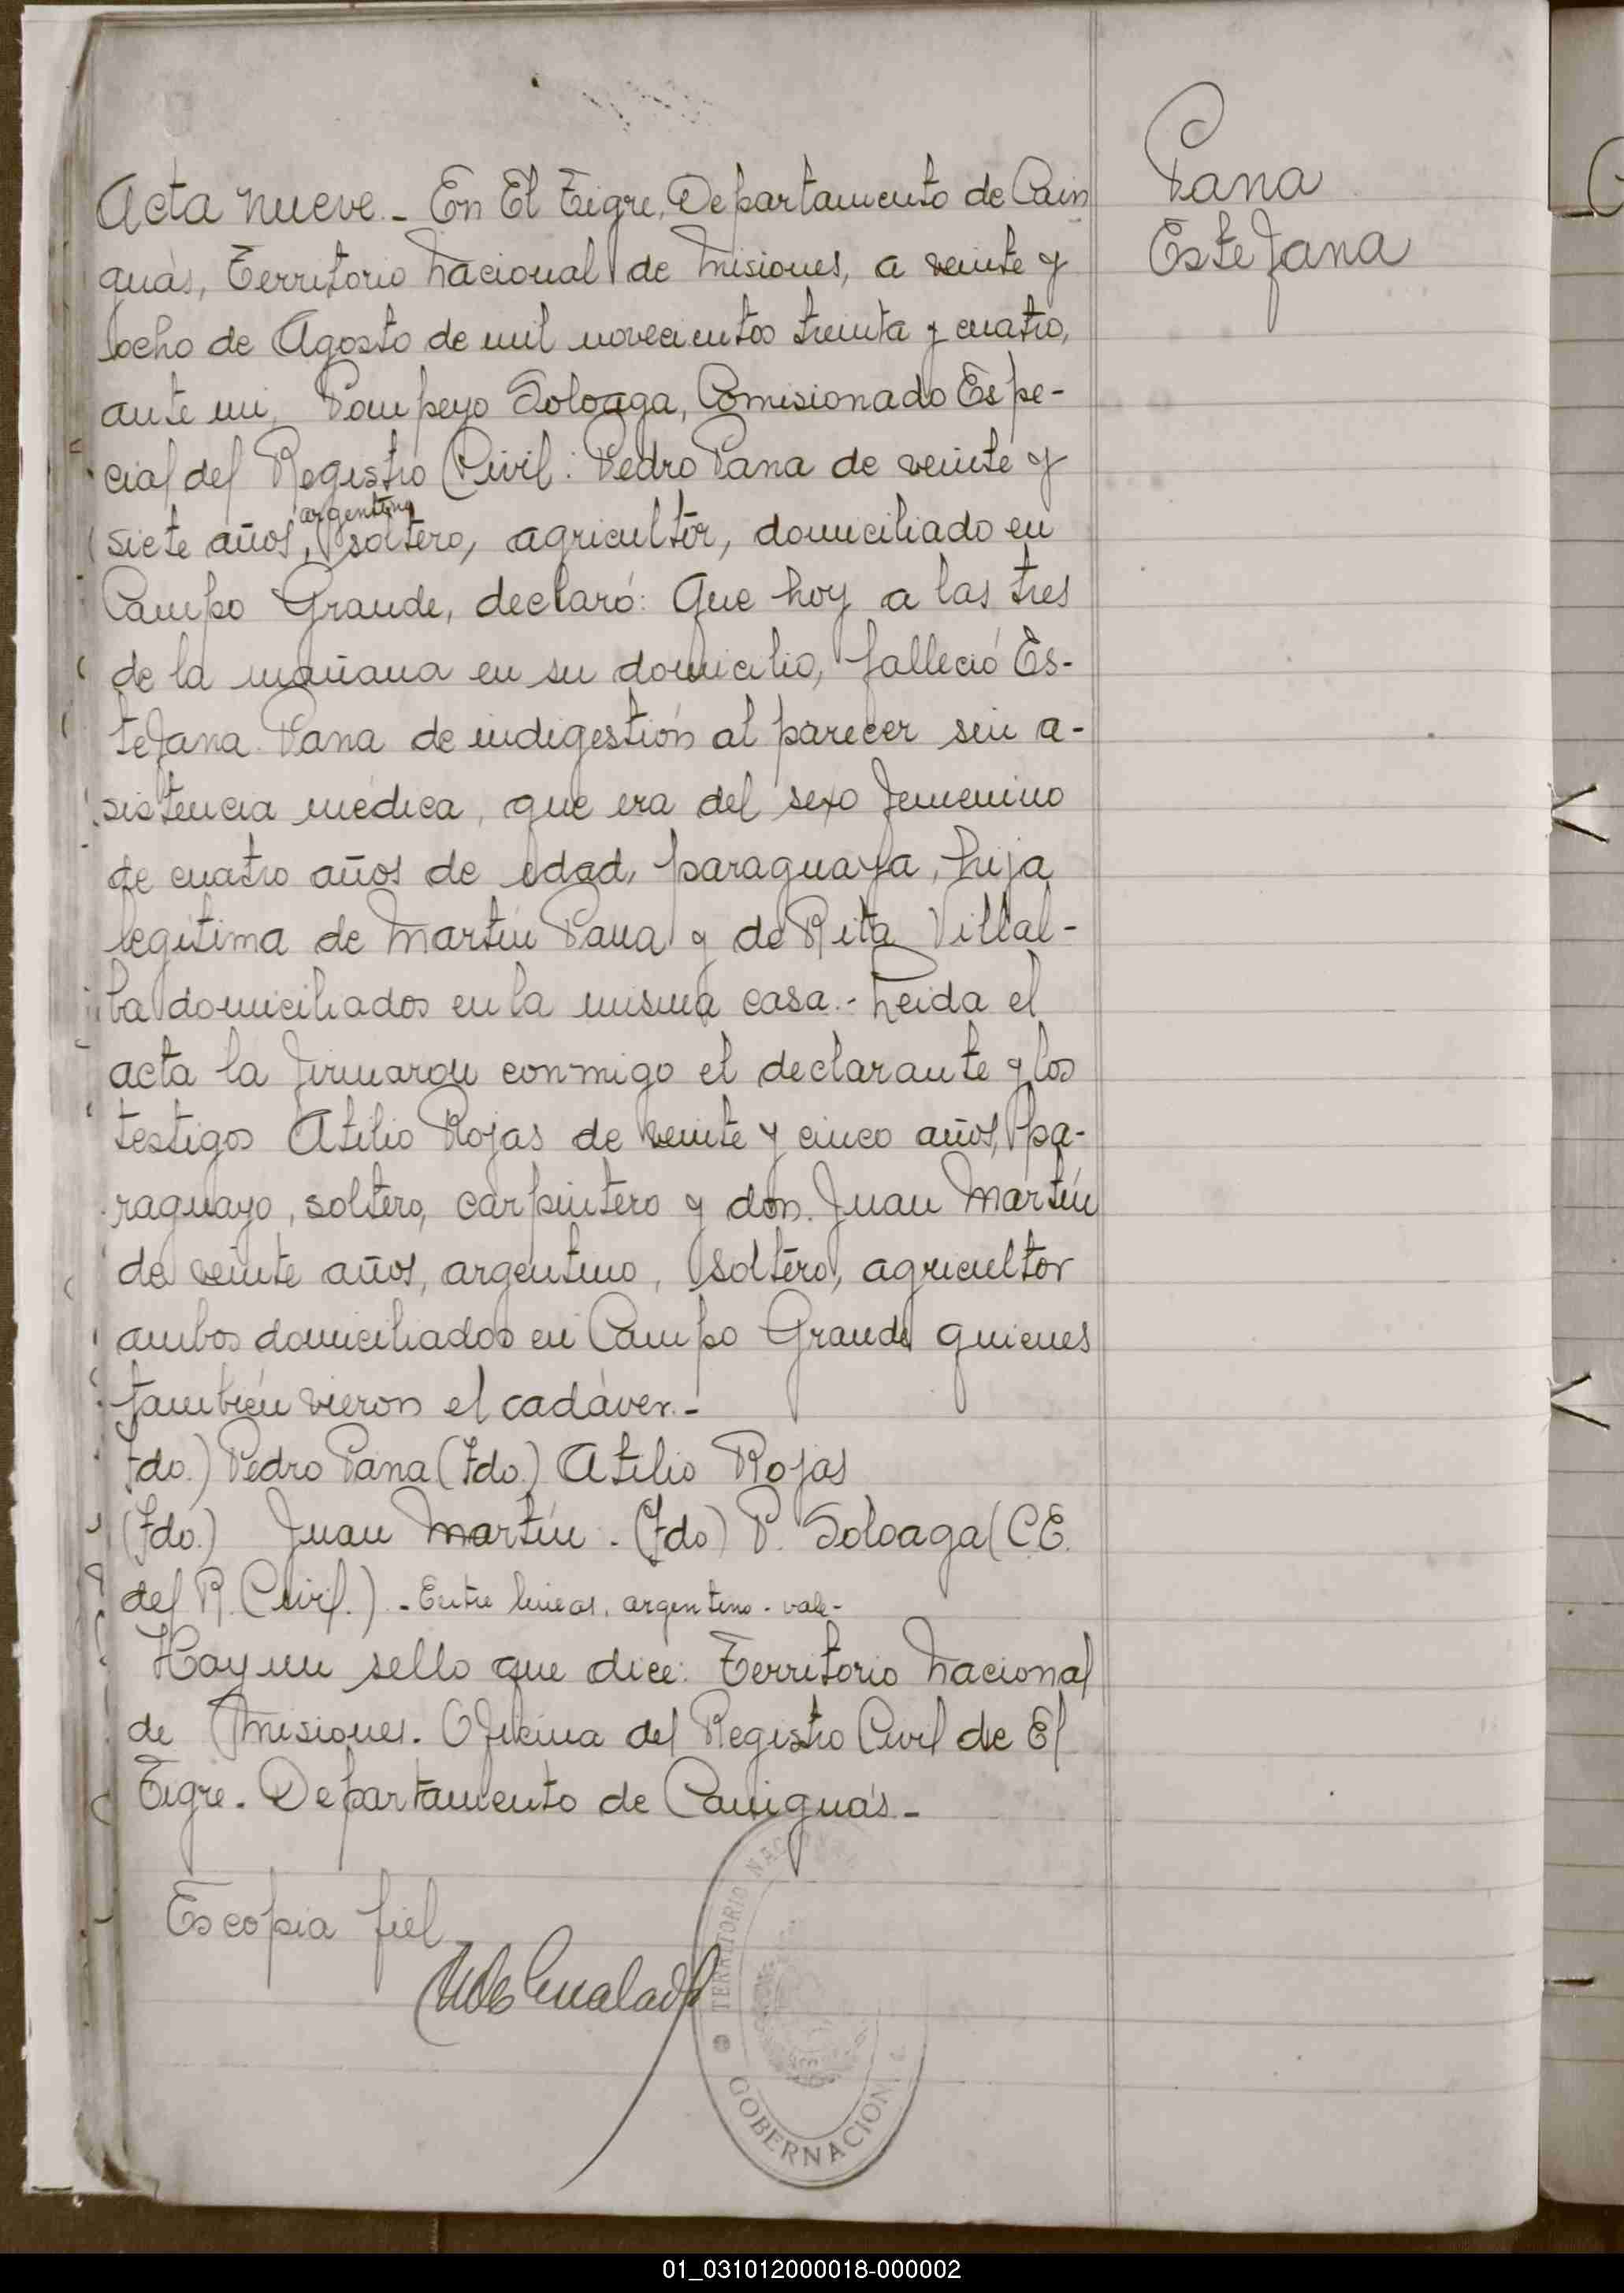 Pana
Estefana
Acta nueve.- En El Tigre, Departamento de Cain
guás, Territorio Nacional de Misiones, a veinte y
ocho de Agosto de mil novecientos treinta y cuatro,
ante mi, Pompeyo Soloaga, Comisionado Espe-
cial del Registro Civil: Pedro Pana de veinte y
argentino
siete años, soltero, agricultor, domiciliado en
Campo Grande, declaró: Que hoy a las tres
de la mañana en su domicilio, falleció Es-
tefana Pana de indigestión al parecer sin a-
sistencia médica, que era del sexo femenino
de cuatro años de edad, paraguaya, hija
legítima de Martín Pana y de Rita Villal-
ba domiciliados en la misma casa.- Leida el
acta la firmaron conmigo el declarante y los
testigos Atilio Rojas de veinte y cinco años, pa-
raguayo, soltero, carpintero y don Juan Martín
de veinte años, argentino, soltero, agricultor
ambos domiciliados en Campo Grande quienes
también vieron el cadáver.-
fdo.) Pedro Pana (fdo.) Atilio Rojas
(fdo.) Juan Martín.- (fdo) P. Soloaga (C.E.
del R. Civil.) - Entre lineas, argentino - vale-
Hay un sello que dice: Territorio Nacional
de Misiones. Oficina del Registro Civil de El
Tigre. Departamento de Cainguás.-
Es copia fiel
TERRITORIO NACIONAL
GOBERNACION
01_031012000018-000002